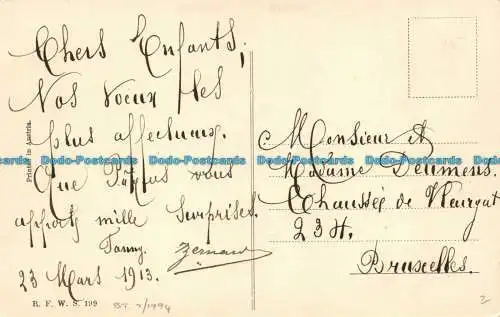 Chers Enfants,
Nos voeux les
plus affectueux.
Que Pâques vous
apporte mille surprises.
Fanny. Bernard
23 Mars 1913.
Printed in Austria.
B. F. W. S. 199
BT 2/1994
Monsieur et
Madame Deumens.
Chaussée de Vleurgat
234.
Bruxelles.
2
Dodo-Postcards Dodo-Postcards Dodo-Postcards Dodo-Postcards Dodo-Postcards